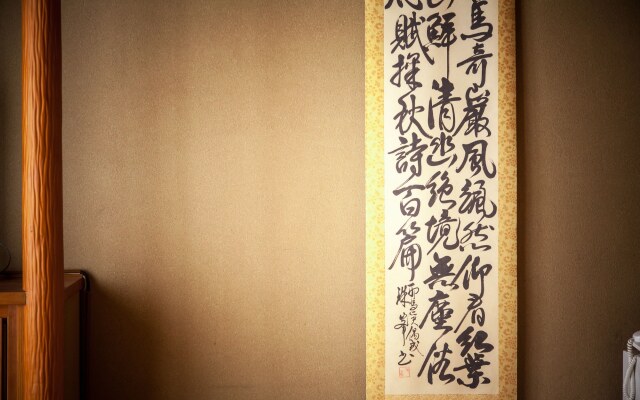 馬奇巖風颯然仰看紅葉
鮮清幽絶境無塵俗
賦探秋詩百篇
書